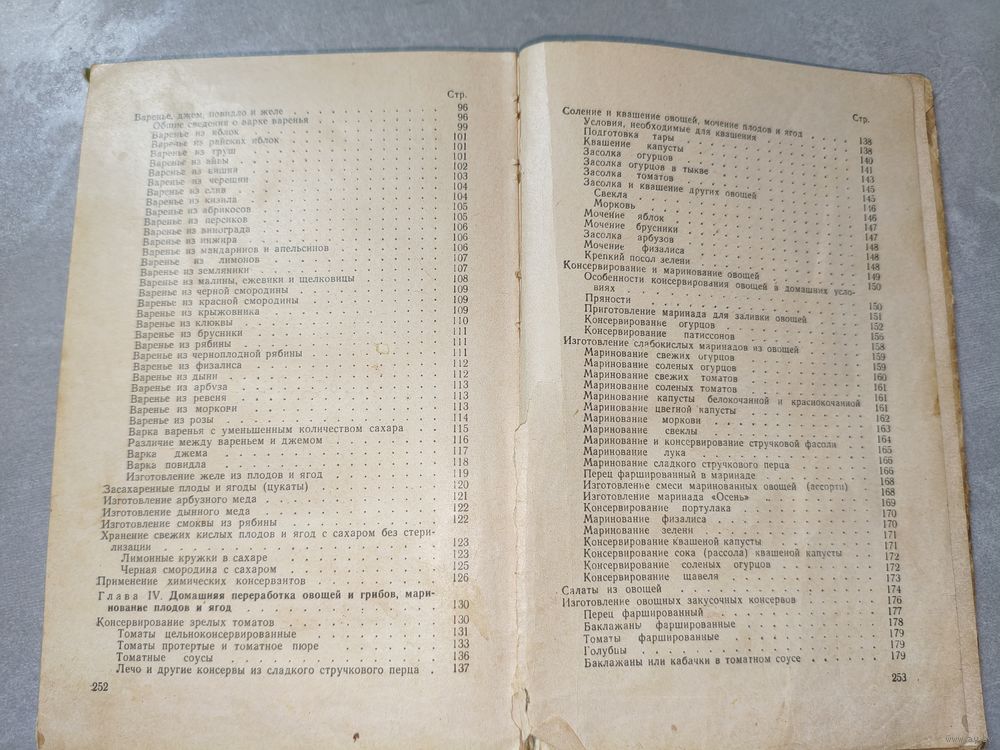 Стр.
Варенье, джем, повидло и желе 96
Общие сведения о варке варенья 96
Варенье из яблок 99
Варенье из райских яблок 101
Варенье из груш 101
Варенье из айвы 101
Варенье из вишни 102
Варенье из черешни 103
Варенье из слив 104
Варенье из кизила 104
Варенье из абрикосов 105
Варенье из персиков 105
Варенье из винограда 106
Варенье из инжира 106
Варенье из мандаринов и апельсинов 106
Варенье из лимонов 107
Варенье из земляники 107
Варенье из малины, ежевики и щелковицы 108
Варенье из черной смородины 109
Варенье из красной смородины 109
Варенье из крыжовника 109
Варенье из клюквы 110
Варенье из брусники 111
Варенье из рябины 111
Варенье из черноплодной рябины 111
Варенье из физалиса 112
Варенье из дыни 112
Варенье из арбуза 113
Варенье из ревеня 113
Варенье из моркови 113
Варенье из розы 114
Варка варенья с уменьшенным количеством сахара 115
Различие между вареньем и джемом 116
Варка джема 117
Варка повидла 118
Изготовление желе из плодов и ягод 119
Засахаренные плоды и ягоды (цукаты) 120
Изготовление арбузного меда 121
Изготовление дынного меда 122
Изготовление смоквы из рябины 122
Хранение свежих кислых плодов и ягод с сахаром без стери-
лизации 123
Лимонные кружки в сахаре 123
Черная смородина с сахаром 125
Применение химических консервантов 126
Глава IV. Домашняя переработка овощей и грибов, мари-
нование плодов и ягод 130
Консервирование зрелых томатов 130
Томаты цельноконсервированные 131
Томаты протертые и томатное пюре 133
Томатные соусы 136
Лечо и другие консервы из сладкого стручкового перца 137
252
Стр.
Соление и квашение овощей, мочение плодов и ягод
Условия, необходимые для квашения 138
Подготовка тары 138
Квашение капусты 140
Засолка огурцов 141
Засолка огурцов в тыкве 143
Засолка томатов 145
Засолка и квашение других овощей 145
Свекла 146
Морковь 146
Мочение яблок 147
Мочение брусники 147
Засолка арбузов 148
Мочение физалиса 148
Крепкий посол зелени 148
Консервирование и маринование овощей 149
Особенности консервирования овощей в домашних усло-
виях 150
Пряности 150
Приготовление маринада для заливки овощей 151
Консервирование огурцов 152
Консервирование патиссонов 156
Изготовление слабокислых маринадов из овощей 158
Маринование свежих огурцов 159
Маринование соленых огурцов 159
Маринование свежих томатов 160
Маринование соленых томатов 161
Маринование капусты белокочанной и краснокочанной 161
Маринование цветной капусты 162
Маринование моркови 163
Маринование свеклы 164
Маринование и консервирование стручковой фасоли 165
Маринование лука 166
Маринование сладкого стручкового перца 166
Перец фаршированный в маринаде 168
Изготовление смеси маринованных овощей (ассорти) 168
Изготовление маринада «Осень» 169
Консервирование портулака 170
Маринование физалиса 170
Маринование зелени 171
Консервирование квашеной капусты 171
Консервирование сока (рассола) квашеной капусты 172
Консервирование соленых огурцов 172
Консервирование щавеля 173
Салаты из овощей 174
Изготовление овощных закусочных консервов 176
Перец фаршированный 177
Баклажаны фаршированные 178
Томаты фаршированные 179
Голубцы 179
Баклажаны или кабачки в томатном соусе 179
253